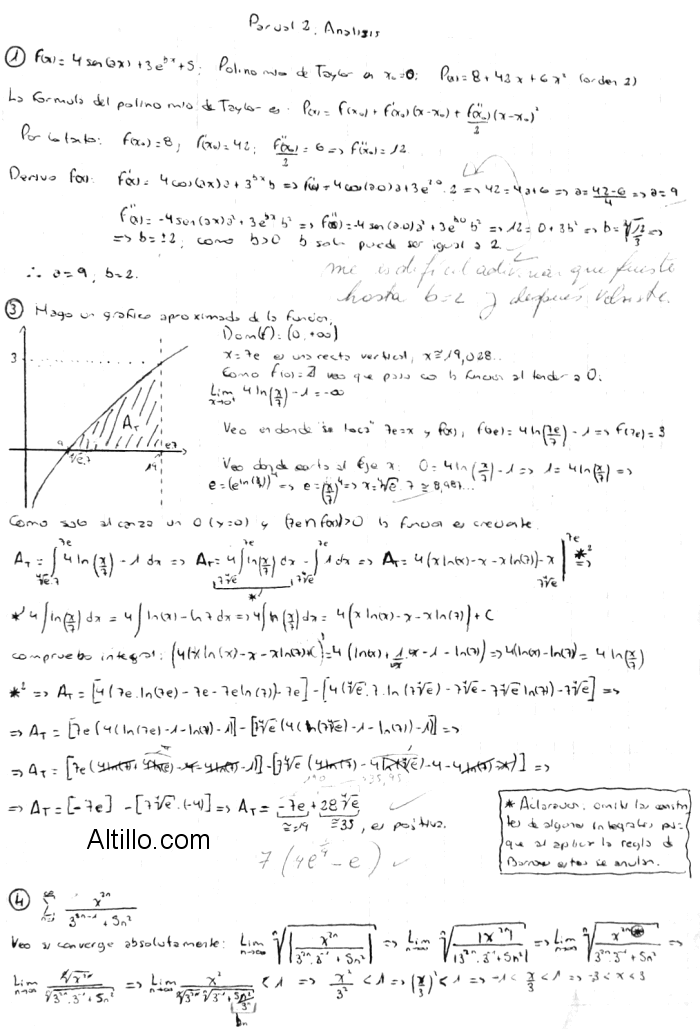 Parcial 2, Analisis
① f(x) = 4 sen(ax) + 3e^{bx} + 5; Polinomio de Taylor en x₀=0: P(x) = 8 + 42x + 6x² (orden 2)
La formula del polinomio de Taylor es: P(x) = f(x₀) + f'(x₀)(x-x₀) + f''(x₀)/2 (x-x₀)²
Por lo tanto: f(x₀)=8; f'(x₀)=42; f''(x₀)/2 = 6 => f''(x₀)=12
Derivo f(x): f'(x) = 4cos(ax)a + 3^{bx} b => f'(0) = 4cos(a.0)a + 3e^{2.0}.2 => 42 = 4a+6 => a = (42-6)/4 => a = 9
f''(x) = -4sen(ax)a² + 3e^{bx} b² => f''(0) = -4 sen(a.0)a² + 3e^{b.0} b² => 12 = 0 + 3b² => b = √(12/3) =>
=> b = ±2, como b>0 b solo puede ser igual a 2
∴ a=9, b=2.
me es dificil adivinar que fuiste
hasta b=2 y después volviste.
③ Hago un grafico aproximado de la funcion.
Dom(f): (0, +∞)
x = 7e es una recta vertical, x ≅ 19,028...
Como f(0) = ∄ veo que pasa con la funcion al tender a 0.
Lim x→0⁺ 4 ln(x/7) - 1 = -∞
Veo en donde se toca 7e=x y f(x), f(7e) = 4ln(7e/7) - 1 => f(7e) = 3
Veo donde corta al Eje x: 0 = 4ln(x/7) - 1 => 1 = 4ln(x/7) =>
e = (e^{ln(x/7)})⁴ => e = (x/7)⁴ => x = ⁴√e . 7 ≅ 8,987...
3
A_T
⁴√e.7
19
e7
Como solo alcanza un 0 (y=0) y (7e ∩ f(x)) > 0 la funcion es creciente.
A_T = ∫_{⁴√e.7}^{7e} 4 ln(x/7) - 1 dx => A_T = 4∫_{7⁴√e}^{7e} ln(x/7) dx - ∫_{7⁴√e}^{7e} 1 dx => A_T = 4(x ln(x) - x - x ln(7)) - x |_{7⁴√e}^{7e} *² =>
*' 4∫ln(x/7) dx = 4∫ln(x) - ln 7 dx => 4∫ln(x/7) dx = 4(x ln(x) - x - x ln(7)) + C
compruebo integral: (4(x ln(x) - x - x ln(7)) + C)' = 4(ln(x) + 1/x . x - 1 - ln(7)) => 4(ln(x) - ln(7)) = 4 ln(x/7)
*² => A_T = [4(7e.ln(7e) - 7e - 7e ln(7)) - 7e] - [4(⁴√e.7.ln(7⁴√e) - 7⁴√e - 7⁴√e ln(7)) - 7⁴√e] =>
=> A_T = [7e(4(ln(7e) - 1 - ln(7)) - 1)] - [7⁴√e(4(ln(7⁴√e) - 1 - ln(7)) - 1)] =>
=> A_T = [7e(4ln(7) + 4ln(e) - 4 - 4ln(7) - 1)] - [7⁴√e(4ln(7) - 4ln(⁴√e) - 4 - 4ln(7) - 1)] =>
=> A_T = [-7e] - [7⁴√e.(-4)] => A_T = -7e + 28⁴√e, es positiva.
≅19 ≅35
7(4e^{1/4} - e) ✓
* Aclaracion, omiti las constan-
tes de algunas integrales, por-
que al aplicar la regla de
Barrow estas se anulan.
Altillo.com
④ Σ_{n=1}^{∞} x^{2n} / (3^{2n-1} + 5n²)
Veo si converge absolutamente: Lim n→∞ ⁿ√|x^{2n} / (3^{2n}.3⁻¹ + 5n²)| => Lim n→∞ ⁿ√(|x^{2n}| / |3^{2n}.3⁻¹ + 5n²|) => Lim n→∞ ⁿ√(x^{2n} / (3^{2n}.3⁻¹ + 5n²)) =>
Lim n→∞ ⁿ√x^{2n} / ⁿ√(3^{2n}.3⁻¹ + 5n²) => Lim n→∞ x² / (ⁿ√3^{2n} ⁿ√(3⁻¹ + 5n²/3^{2n})) < 1 => x²/3² < 1 => (x/3)² < 1 => -1 < x/3 < 1 => -3 < x < 3
bn